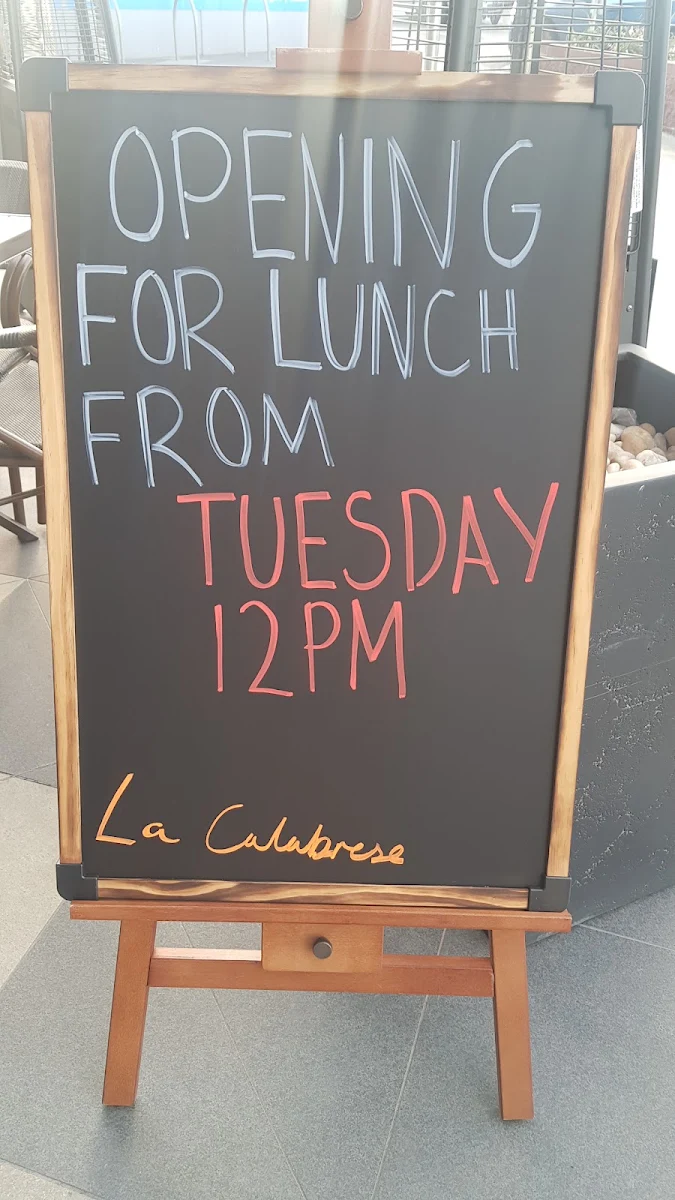 OPENING
FOR LUNCH
FROM
TUESDAY
12PM
La Calabrese